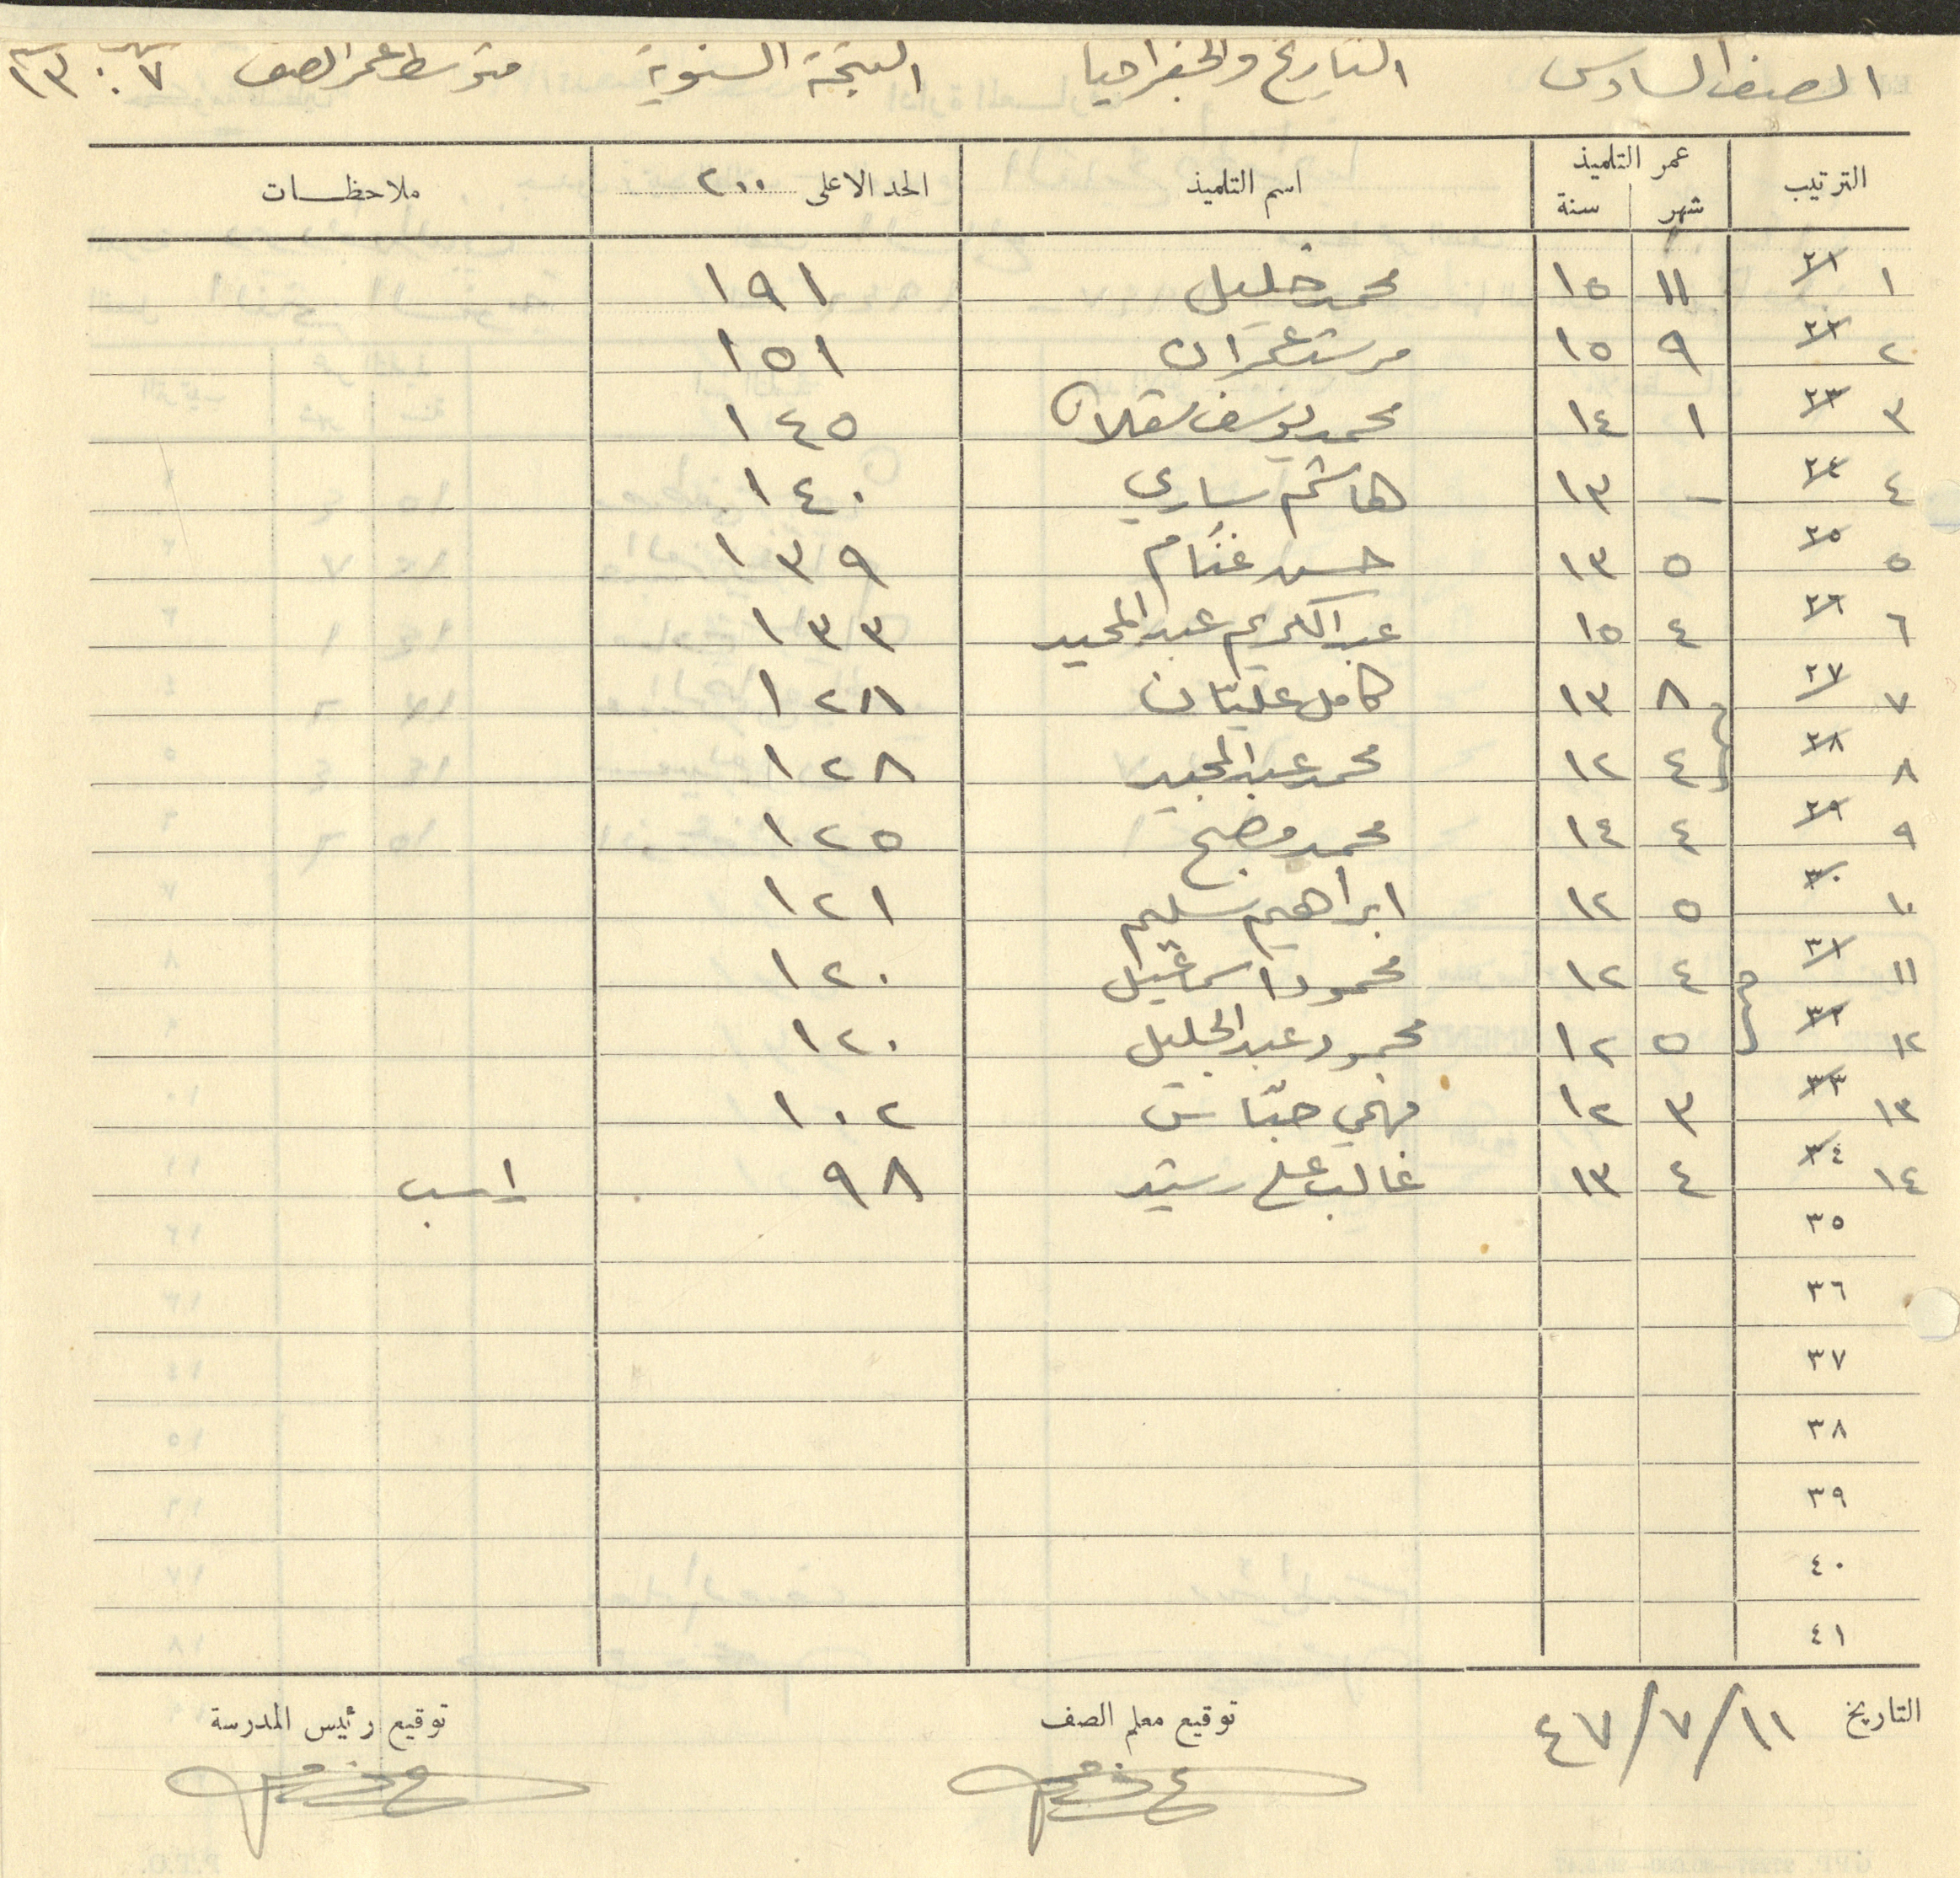 الصف السادس التاريخ والجغرافيا النتيجة السنوية متوسط عمر الصف ٧ ١٣
الترتيب عمر التلميذ شهر سنة اسم التلميذ الحد الاعلى ٢٠٠ ملاحظات
١ ٢١ ١١ ١٥ محمد خليل ١٩١
٢ ٢٢ ٩ ١٥ مرشد عمران ١٥١
٣ ٢٣ ١ ١٤ محمد يوسف سقلان ١٤٥
٤ ٢٤ - ١٣ هاشم ساري ١٤٠
٥ ٢٥ ٥ ١٣ حسن غنام ١٣٩
٦ ٢٦ ٤ ١٥ عبد الكريم عبد المجيد ١٣٣
٧ ٢٧ ٨ ١٣ كامل عليان ١٢٨
٨ ٢٨ ٤ ١٢ محمد عبد المجيد ١٢٨
٩ ٢٩ ٤ ١٤ محمد مصلح ١٢٥
١٠ ٣٠ ٥ ١٢ ابراهيم سليم ١٢١
١١ ٣١ ٤ ١٢ محمود اسماعيل ١٢٠
١٢ ٣٢ ٥ ١٢ محمود عبد الجليل ١٢٠
١٣ ٣٣ ٣ ١٢ فهمي حبّاس ١٠٢
١٤ ٣٤ ٤ ١٣ غالب علي رشيد ٩٨ راسب
٣٥
٣٦
٣٧
٣٨
٣٩
٤٠
٤١
التاريخ ١١/٧/٤٧ توقيع معلم الصف توقيع رئيس المدرسة